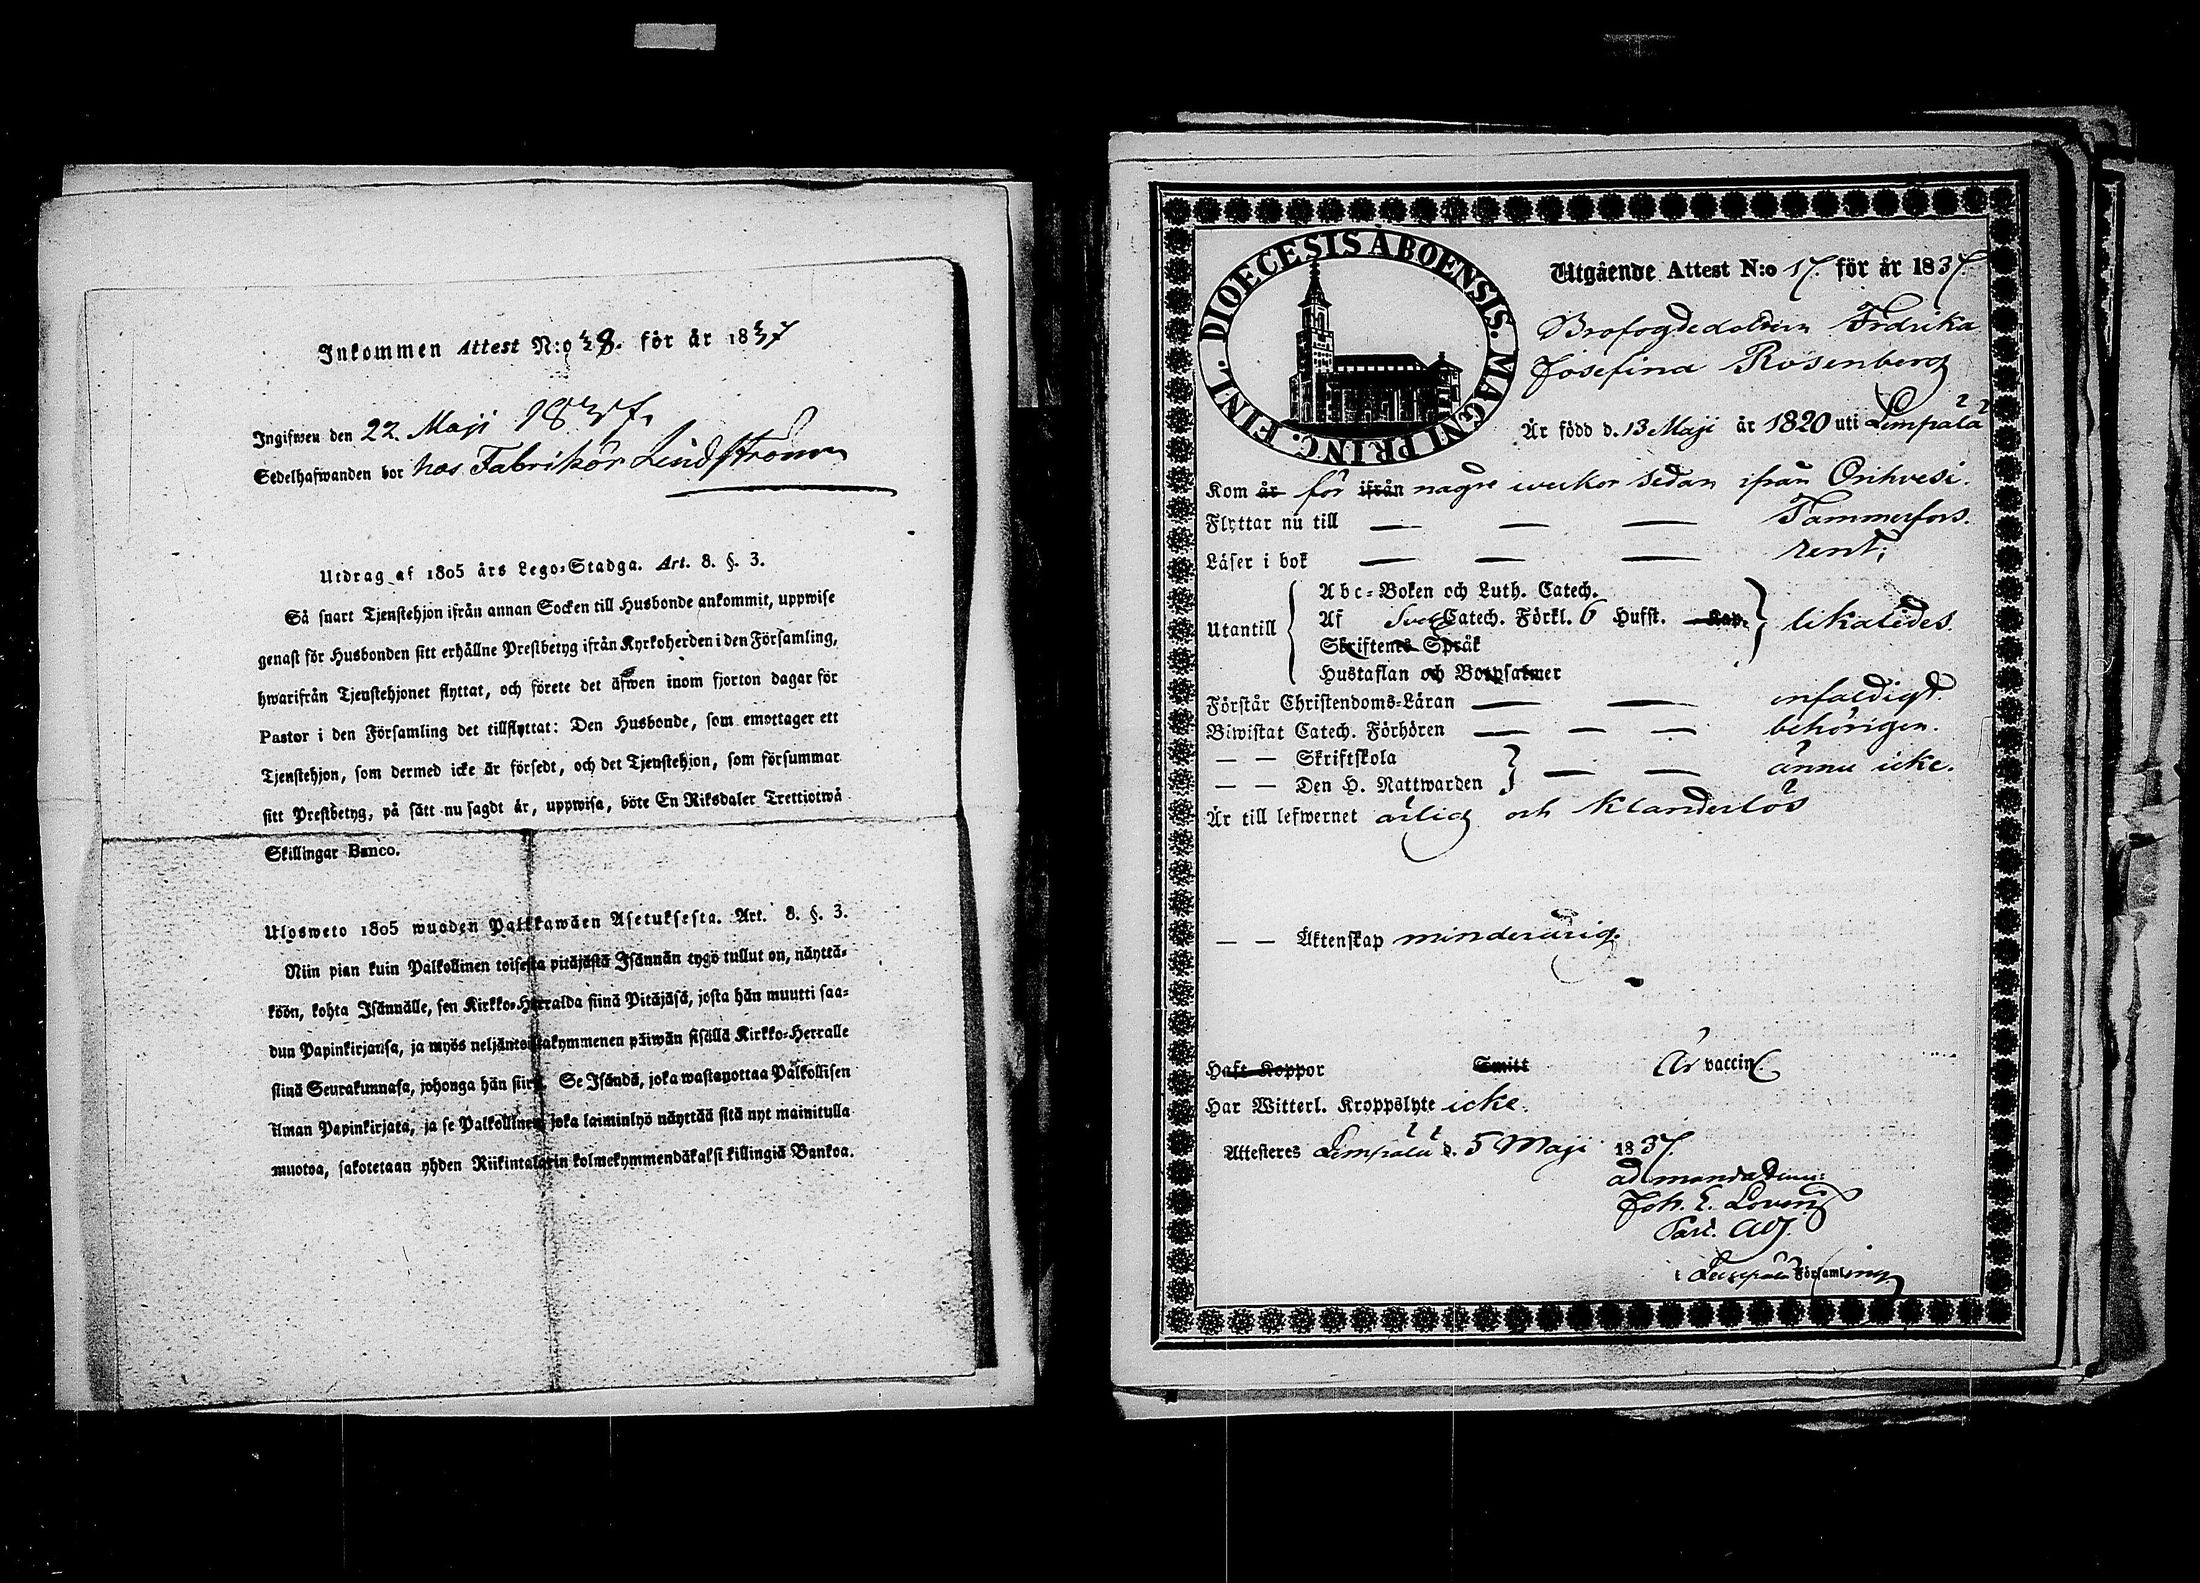 Inkommen Attest N:o 28. för år 1837
Ingifwen den 22. Maji 1837.
Sedelhafwanden bor hos Fabrikör Lindström
Utdrag af 1805 års Lego-Stadga. Art. 8. §. 3.
Så snart Tjenstehjon ifrån annan Socken till Husbonde ankommit, uppwise
genast för Husbonden sitt erhållne Prestbetyg ifrån Kyrkoherden i den Församling,
hwarifrån Tjenstehjonet flyttat, och förete det äfwen inom fjorton dagar för
Pastor i den Församling det tillflyttat: Den Husbonde, som emottager ett
Tjenstehjon, som dermed icke är försedt, och det Tjenstehjon, som försummar
sitt Prestbetyg, på sätt nu sagdt är, uppwisa, böte En Riksdaler Trettiotwå
Skillingar Banco.
Ulosweto 1805 wuoden Palkkawäen Asetuksesta. Art. 8. §. 3.
Niin pian kuin Palkollinen toisesta pitäjästä Isännän tygö tullut on, näyttä-
köön, kohta Isännälle, sen Kirkko-Herralda siinä Pitäjäsä, josta hän muutti saa-
dun Papinkirjansa, ja myös neljäntoistakymmenen päiwän sisällä Kirkko-Herralle
siinä Seurakunnasa, johonga hän siirsi. Se Isändä, joka wastanottaa Palkollisen
ilman Papinkirjata, ja se Palkollinen, joka laiminlyö näyttää sitä nyt mainitulla
muotoa, sakotetaan yhden Riikintalarin kolmekymmendäkaksi killingiä Bankoa.
DIOECESIS ÅBOENSIS. MAGNI PRINC. FINL.
Utgående Attest N:o 17. för år 1837.
Brofogdedottren Fredrika
Josefina Rosenberg
Är född d. 13 Maji år 1820 uti Lempälä
Kom år för ifrån några weckor sedan ifrån Orihvesi.
Flyttar nu till — — — Tammerfors.
Läser i bok — — — rent;
Utantill
Abc-Boken och Luth. Catech.
Af Sveb. Catech. Förkl. 6 Hufst. Kap. likaledes.
Skriftenes Språk
Hustaflan och Botpsalmer
Förstår Christendoms-Läran — — enfaldigt
Biwistat Catech. Förhören — — — behörigen.
— — Skriftskola
— — Den H. Nattwarden — — ännu icke.
Är till lefwernet ärlig och klanderlös
— — Äktenskap minderårig.
Haft Koppor Smitt Är vaccin.
Har Witterl. Kroppslyte icke.
Attesteres Lempälä d. 5 Maji 1837.
ad mandatum:
Joh. E. Loven
Par. Adj.
i Lempälä Församling